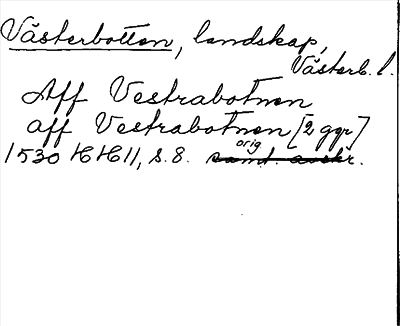 Västerbotten, landskap,
Västerb. l.
Aff Vestrabotnen
aff Vestrabotnen [2 ggr]
orig
1530 HH 11, s. 8. samt. avskr.